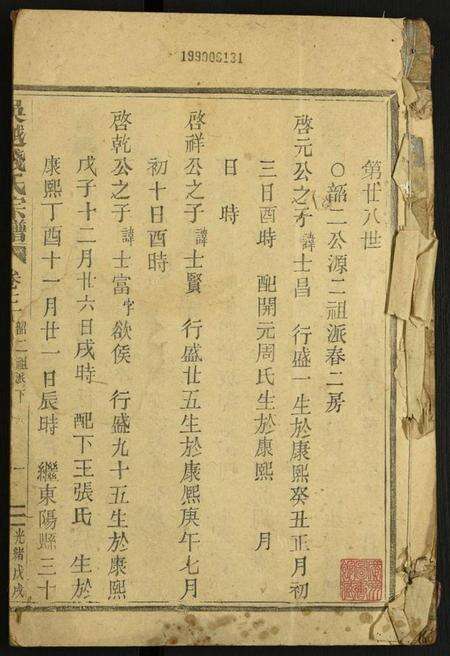 199008131
第廿八世
○韶二公源二祖派春二房
啓元公之子諱士昌 行盛一生於康熙癸丑正月初
三日酉時 配開元周氏生於康熙 月
日 時
啓祥公之子諱士賢 行盛廿五生於康熙庚午七月
初十日酉時
啓乾公之子諱士富字欲侯 行盛九十五生於康熙
戊子十二月廿六日戌時 配下王張氏 生於
康熙丁酉十一月廿一日辰時 繼東陽縣三十
吳越錢氏宗譜 卷十一 韶二祖派下 一 光緒戊戌